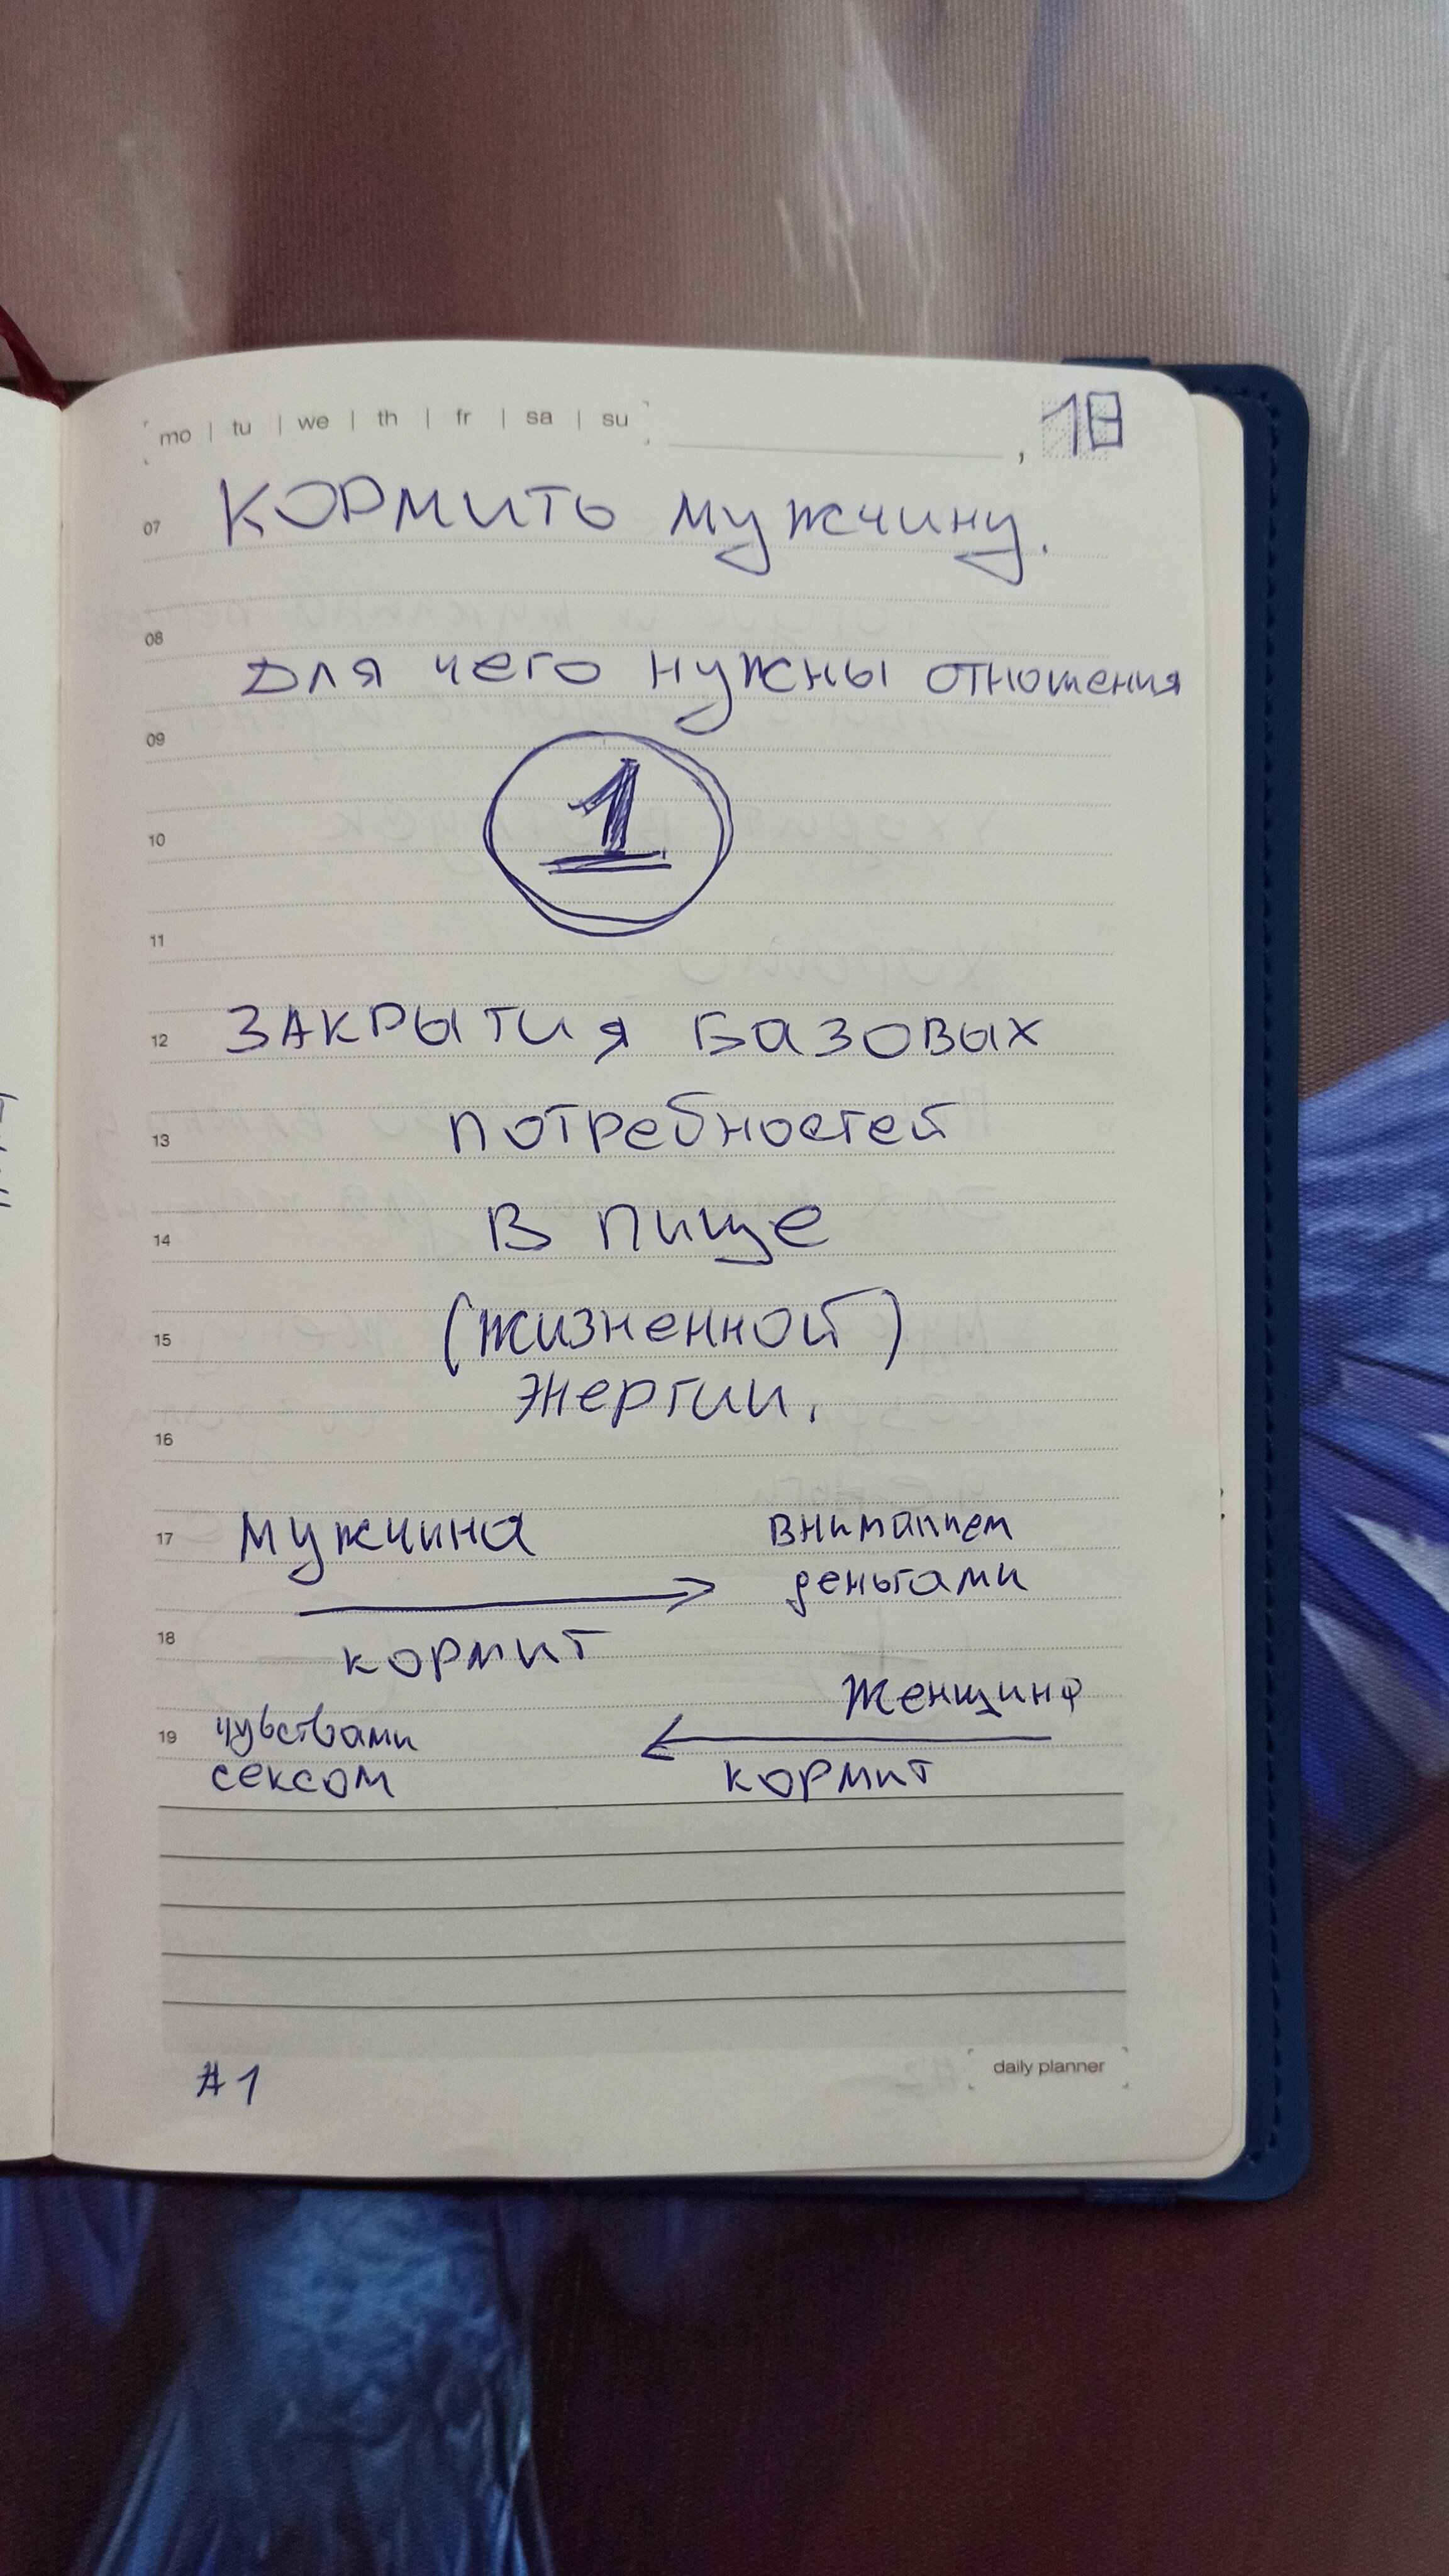 mo | tu | we | th | fr | sa | su , 18
07 КОРМИТЬ мужчину.
08 Для чего нужны отношения
09
10 1
11
12 ЗАКРЫТИЯ БАЗОВЫХ
13 потребностей
14 В пище
15 (жизненной)
энергии.
16
17 Мужчина вниманием
деньгами
18 кормит
Женщина
19 чувствами
сексом кормит
#1 daily planner